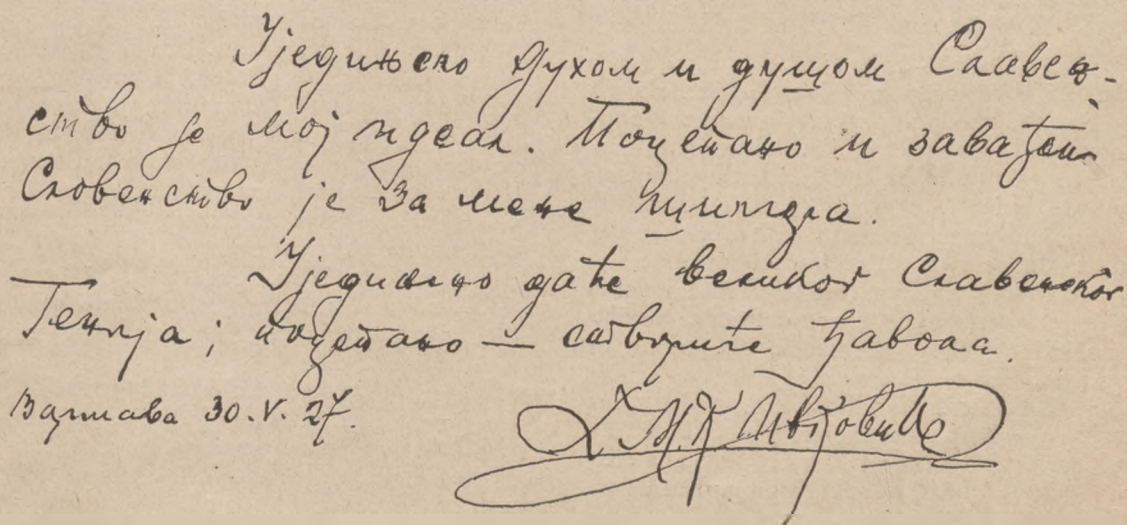 Уједињено духом и душом Славен-
ство је мој идеал. Поцепано и завађено
Словенство је за мене
Уједињено даће великог Славенског
Генија; поцепано — створиће ђавола.
Варшава 30.V.27.